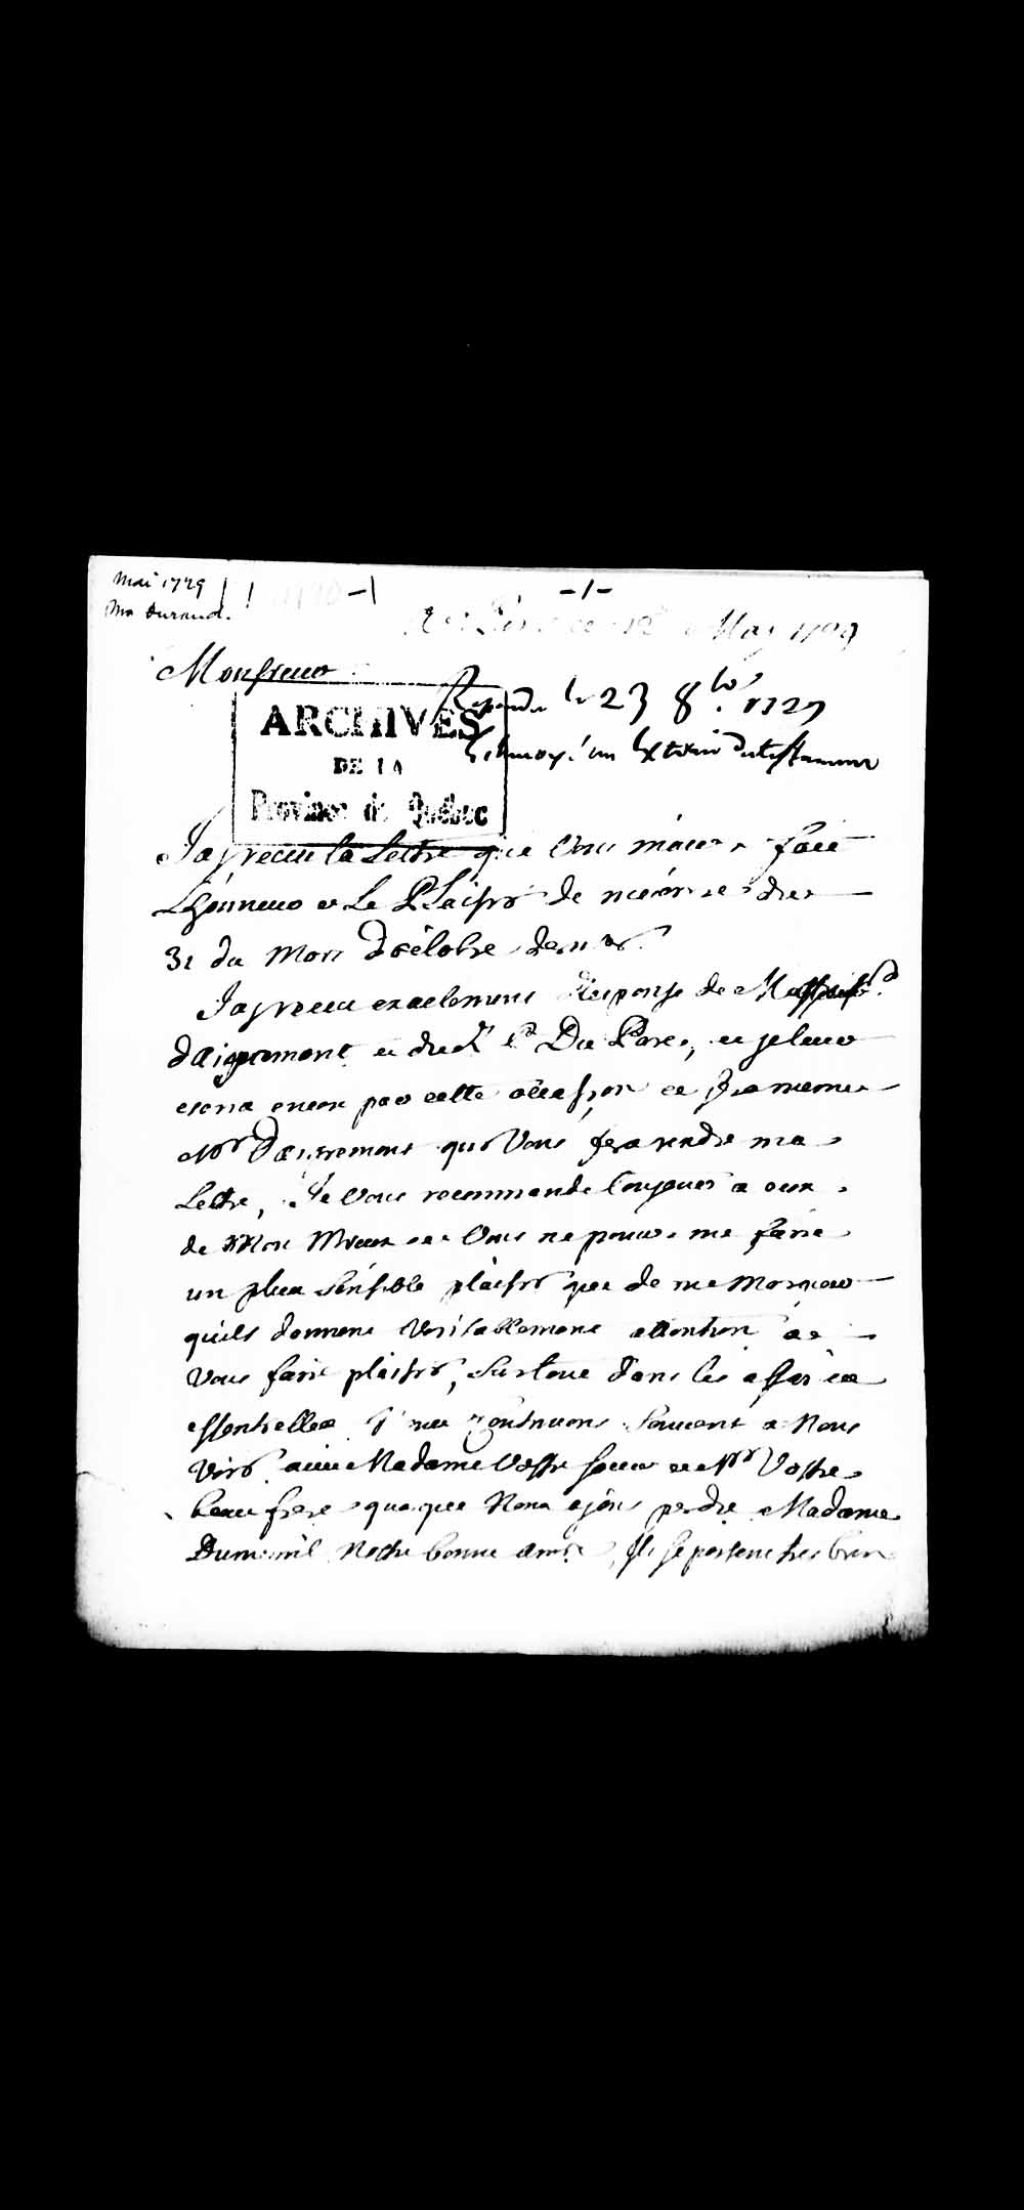 Mai 1729
Mr Durand.
-1-
May 1729
Monsieur
Repondu le 23 8bre 1729
Envoyé un Extrait du testament
ARCHIVES
DE LA
Province de Québec
Jay receu la Lettre que Vous m'avez fait
Lhonneur et Le Plaisir de m'écrire
31 du Mois d'octobre dernier.
Jay receu exactement Response de
Daigremont et du R P Du Parc, et je leur
ecris encor par cette occasion et
Mr Daigremont qui Vous fera rendre ma
Lettre, Je Vous recommande toujours a eux
de Mon Mieux et Vous ne pouvez me faire
un plus sensible plaisir que de me Marquer
quils donnent Veritablement attention a
Vous faire plaisir, Surtout dans les affaires
essentielles. Nous continuons souvent a Nous
Voir avec Madame Vostre soeur et Mr Vostre
beau frere quoyque Nous ayons perdu Madame
Dumesnil Nostre bonne amie, Ils se portent tres bien